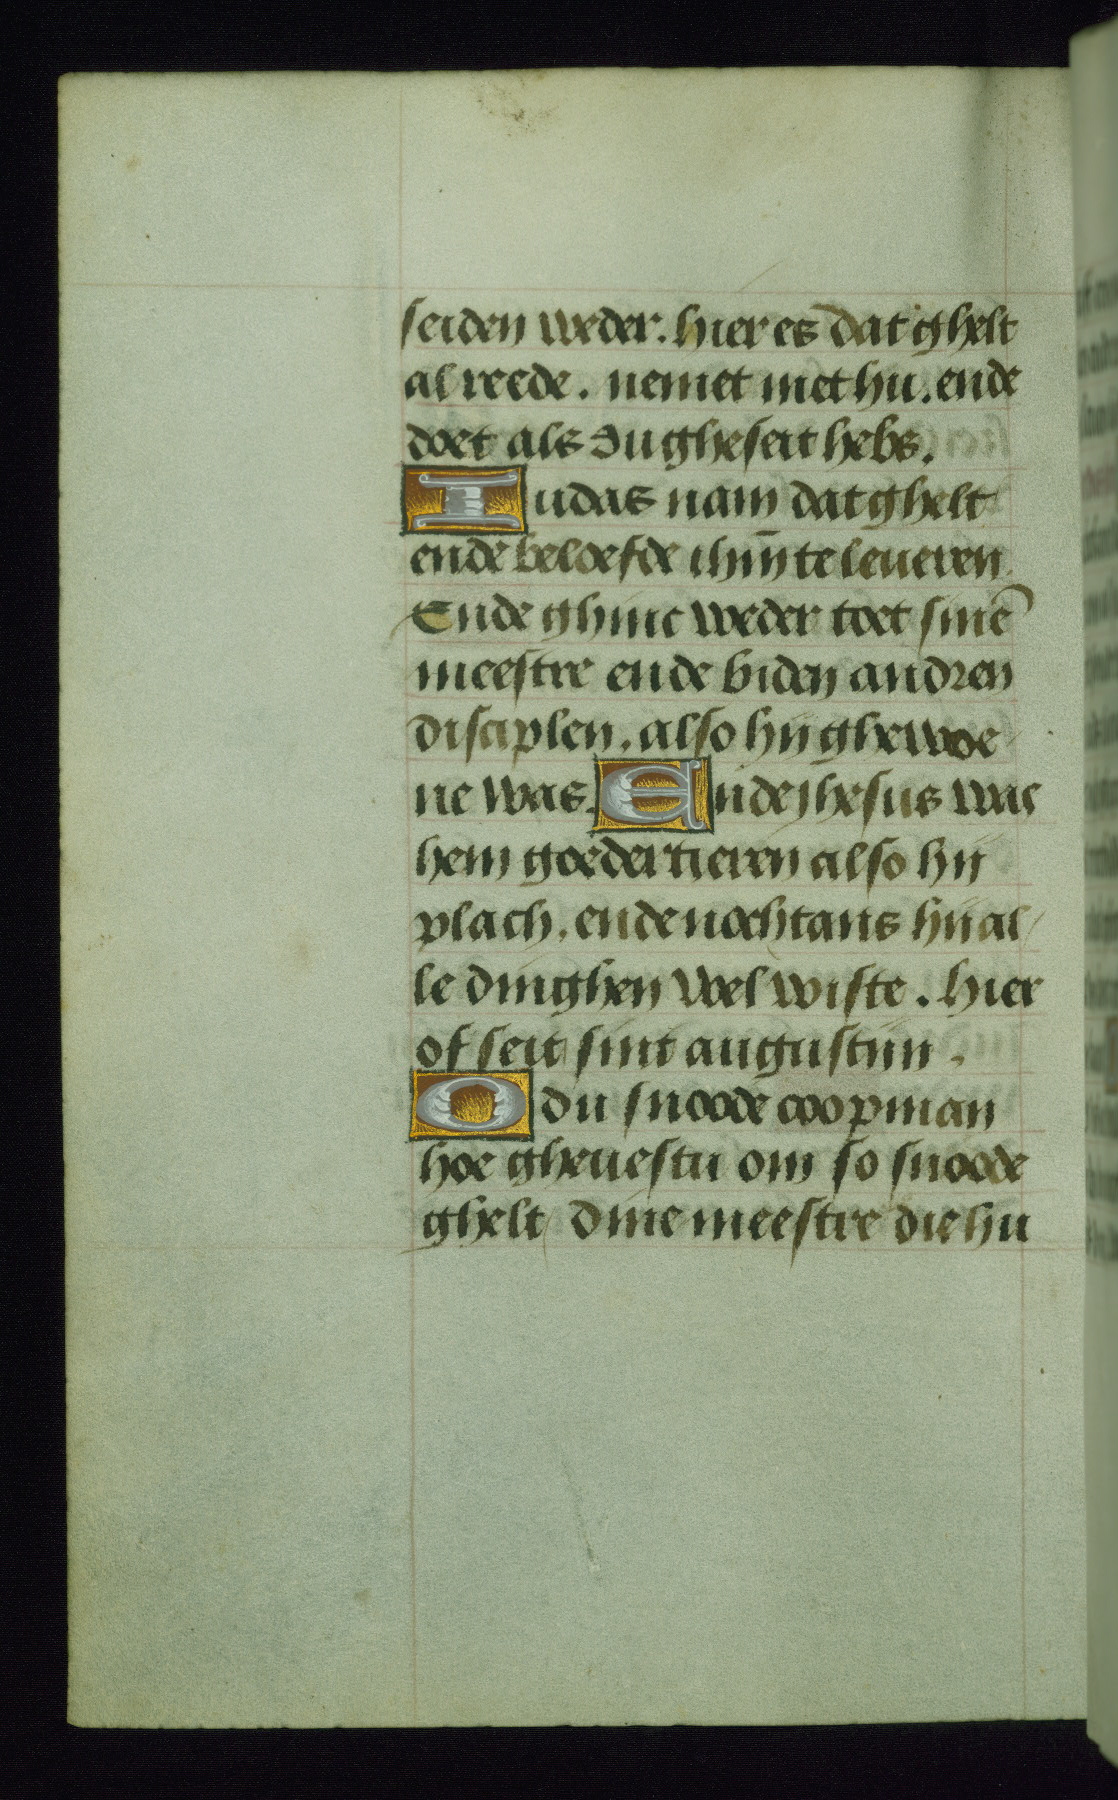 seiden weder. hier es dat ghelt
al reede. nemet met hu. ende
doet als du gheseit hebs.
Iudas nam dat ghelt
ende beloefde ihm̄ te leueren
Ende ghinc weder toet sinē
meestre ende biden andren
disciplen. also hij ghewoe
ne was. Ende jhesus was
hem goedertieren also hij
plach. ende nochtans hij al/
le dinghen wel wiste. hier
of seit sint augustijn.
O du snoode coopman
hoe gheuestu om so snoode
ghelt dine meestre die hu